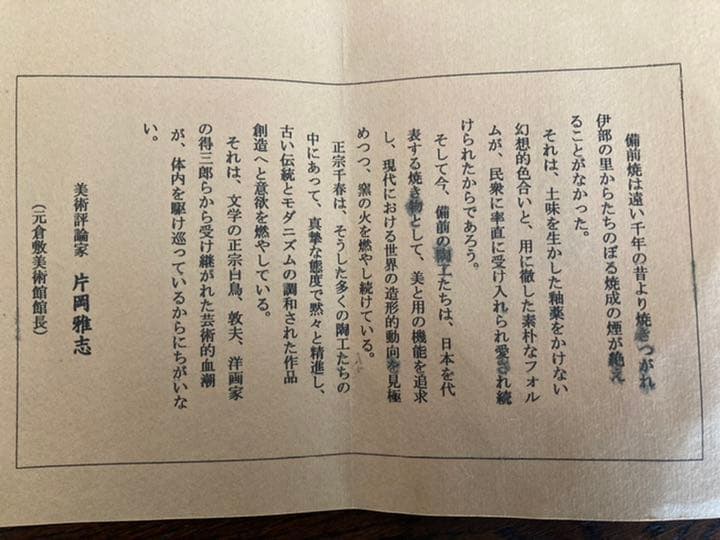 備前焼は遠い千年の昔より焼きつがれ
伊部の里からたちのぼる焼成の煙が絶え
ることがなかった。
それは、土味を生かした釉薬をかけない
幻想的色合いと、用に徹した素朴なフォル
ムが、民衆に率直に受け入れられ愛され続
けられたからであろう。
そして今、備前の陶工たちは、日本を代
表する焼き物として、美と用の機能を追求
し、現代における世界の造形的動向を見極
めつつ、窯の火を燃やし続けている。
正宗千春は、そうした多くの陶工たちの
中にあって、真摯な態度で黙々と精進し、
古い伝統とモダニズムの調和された作品
創造へと意欲を燃やしている。
それは、文学の正宗白鳥、敦夫、洋画家
の得三郎らから受け継がれた芸術的血潮
が、体内を駆け巡っているからにちがいな
い。
美術評論家 片岡雅志
(元倉敷美術館館長)